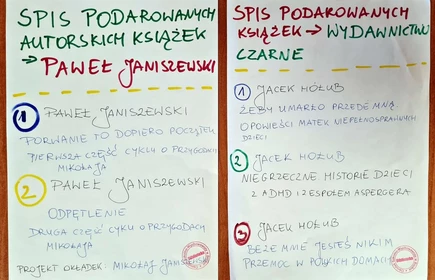 SPIS PODAROWANYCH
AUTORSKICH KSIĄŻEK
→ PAWEŁ JANISZEWSKI
1 PAWEŁ JANISZEWSKI
PORWANIE TO DOPIERO POCZĄTEK
PIERWSZA CZĘŚĆ CYKLU O PRZYGODACH
MIKOŁAJA
2 PAWEŁ JANISZEWSKI
ODPĘTLENIE
DRUGA CZĘŚĆ CYKLU O PRZYGODACH
MIKOŁAJA
PROJEKT OKŁADEK: MIKOŁAJ JANISZEWSKI
SPIS PODAROWANYCH
KSIĄŻEK → WYDAWNICTWO
CZARNE
1 JACEK HOŁUB
ŻEBY UMARŁO PRZEDE MNĄ
OPOWIEŚCI MATEK NIEPEŁNOSPRAWNYCH
DZIECI
2 JACEK HOŁUB
NIEGRZECZNE HISTORIE DZIECI
Z ADHD I ZESPOŁEM ASPERGERA
3 JACEK HOŁUB
BEZE MNIE JESTEŚ NIKIM
PRZEMOC W POLSKICH DOMACH